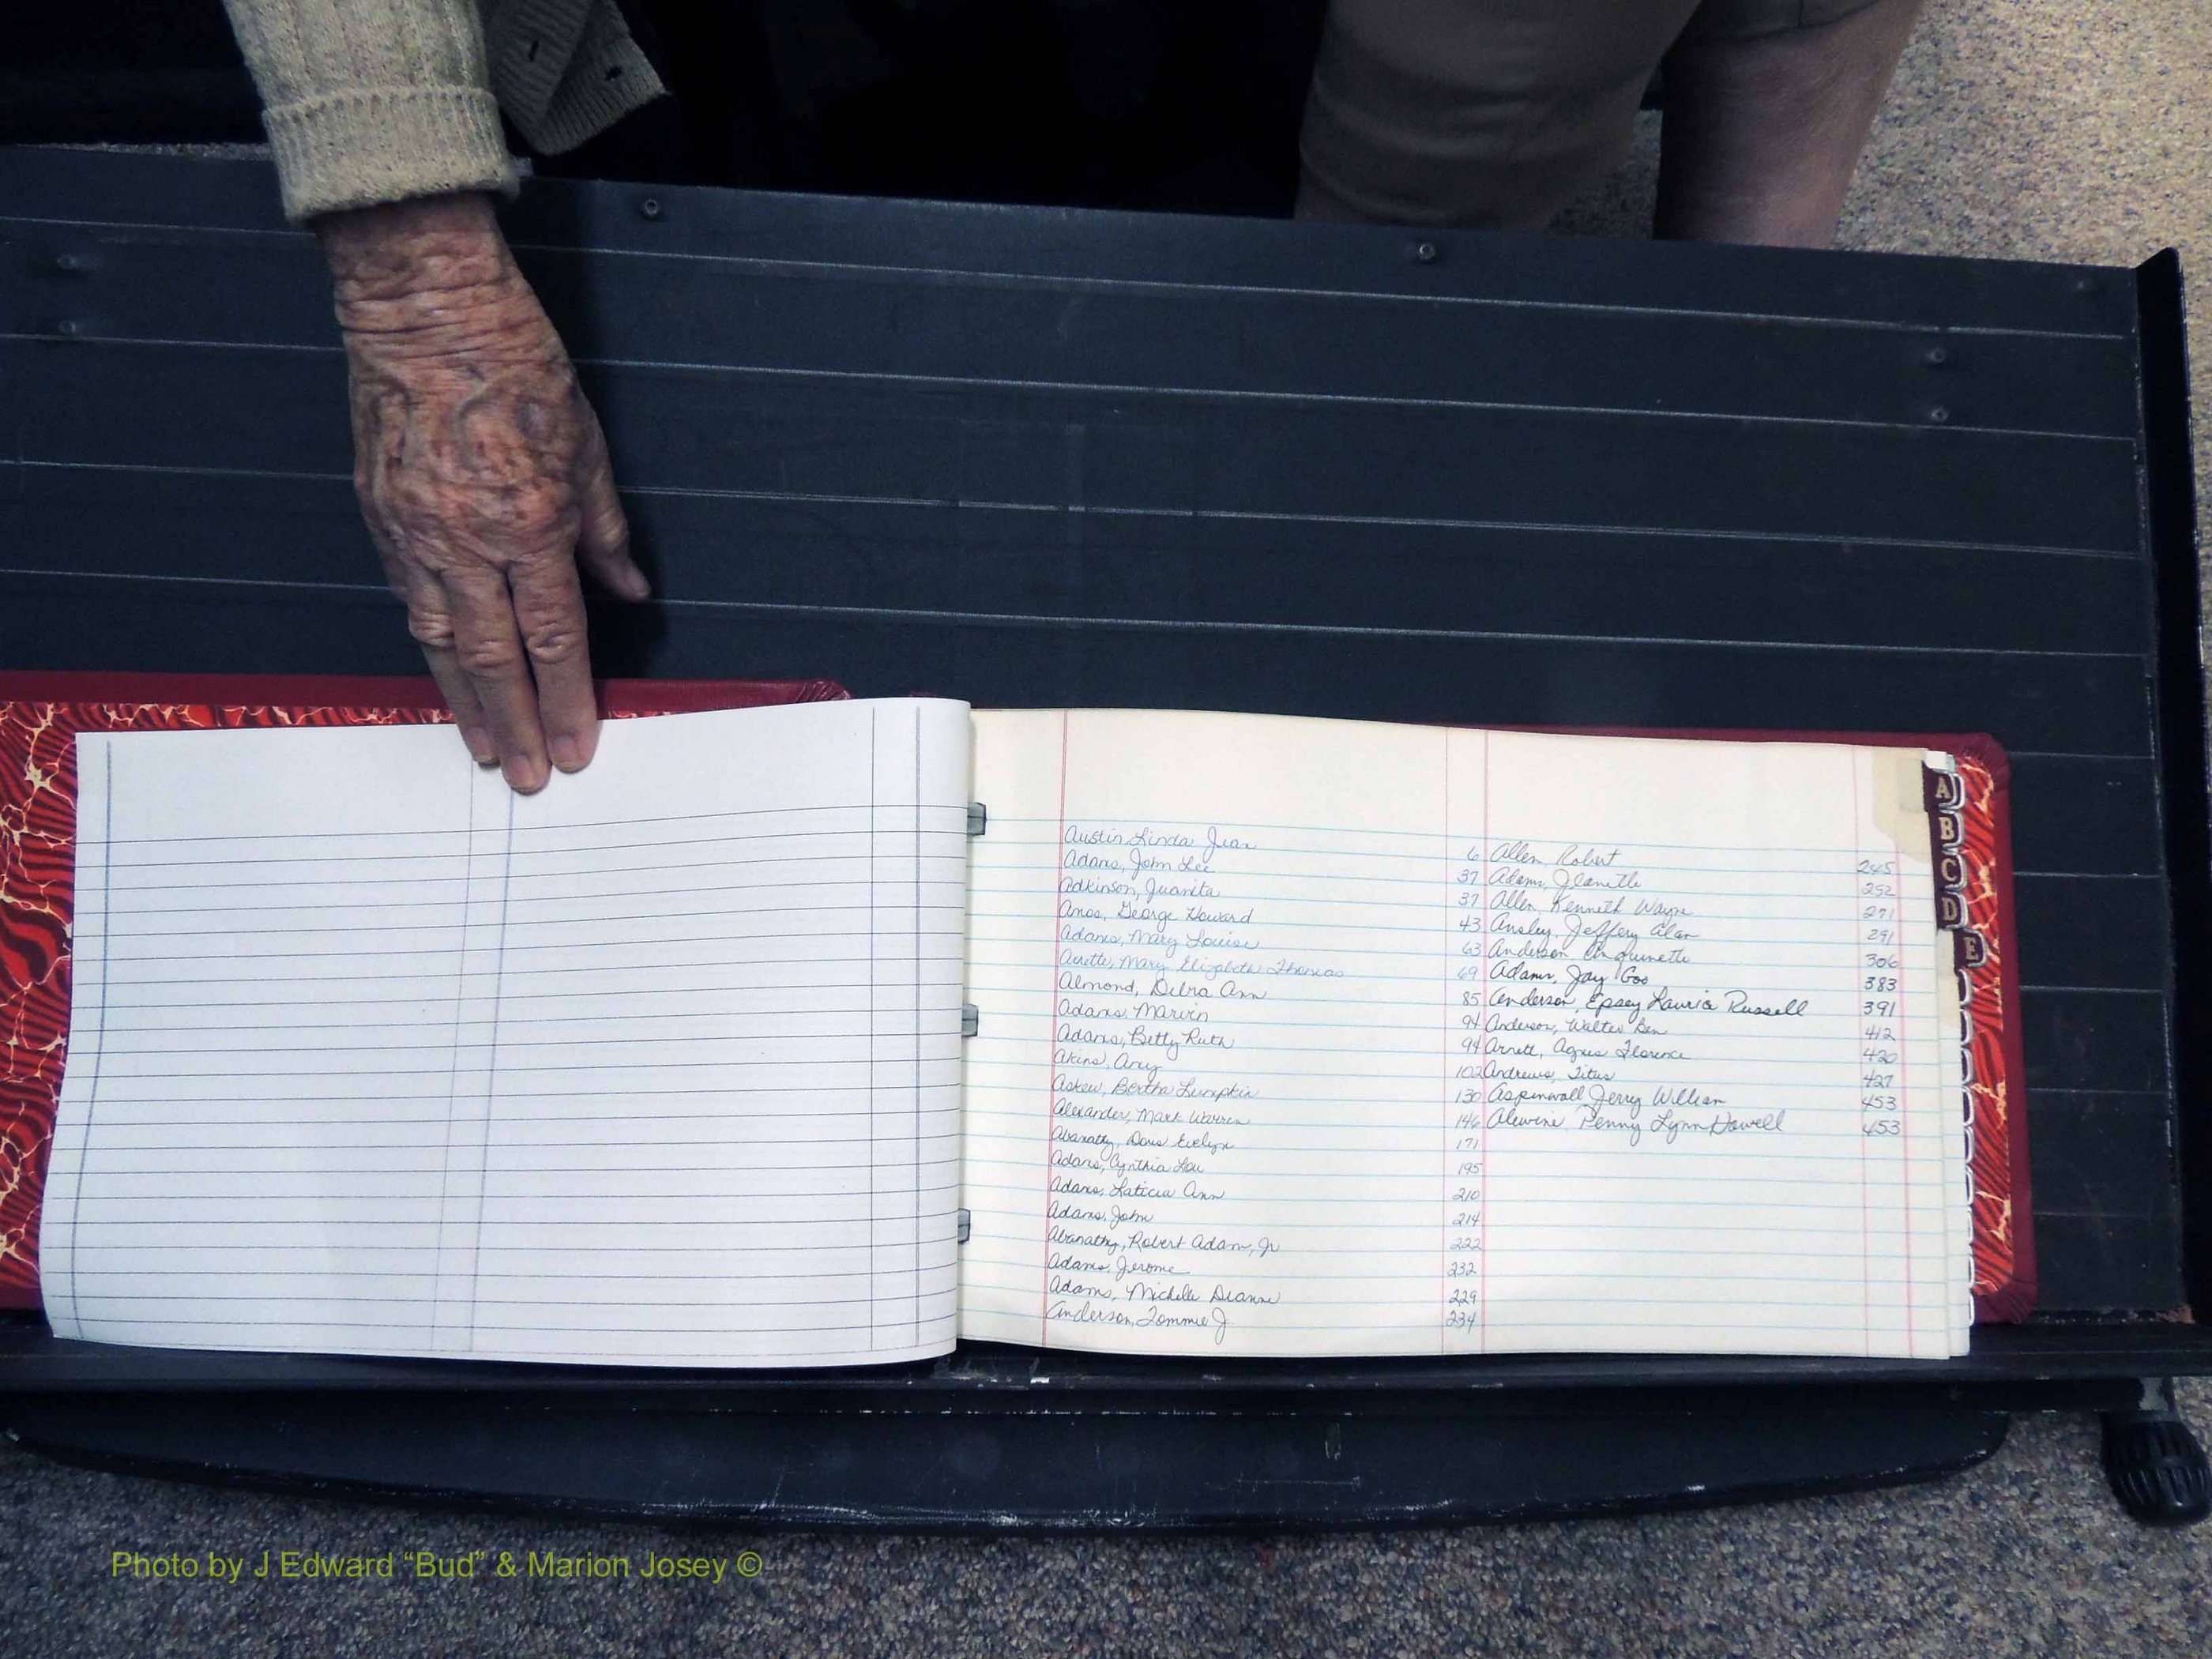 Austin Linda Jean 6
Adams, John Lee 37
Adkinson, Juanita 37
George Howard 43
Adams, Mary Louise 63
Mary Elizabeth Thomas 69
Almond, Debra Ann 85
Adams, Marvin 94
Adams, Betty Ruth 94
Akins, 102
Askew, Bertha Lumpkin 130
Alexander, Mark Warren 146
Abanathy, Doris Evelyn 171
Adams, Cynthia Lou 195
Adams, Laticia Ann 210
Adams, John 214
Abanathy, Robert Adam, Jr 222
Adams, Jerome 232
Adams, Michelle Dianne 229
Anderson, Tommie J. 234
Allen Robert 245
Adams, Jeanette 252
Allen, Kenneth Wayne 271
Ansley, Jeffery Alan 291
Anderson, 306
Adams, Jay 383
Anderson, Epsey Lauria Russell 391
Anderson, Walter Ben 412
Arnett, Agnes Florence 420
Andrews, Titus 427
Aspinwall Jerry William 453
Alewine Penny Lynn Howell 453
A
B
C
D
E
Photo by J Edward “Bud” & Marion Josey ©